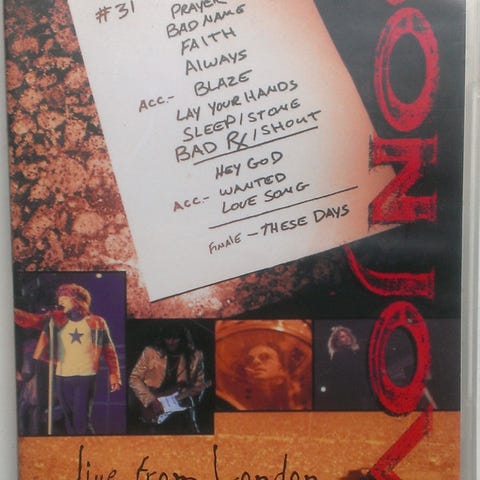 #31 PRAYER
BAD NAME
FAITH
ALWAYS
ACC.- BLAZE
LAY YOUR HANDS
SLEEP/STONE
BAD RX/SHOUT
HEY GOD
ACC.- WANTED
LOVE SONG
FINALE - THESE DAYS
BON JOVI
live from London